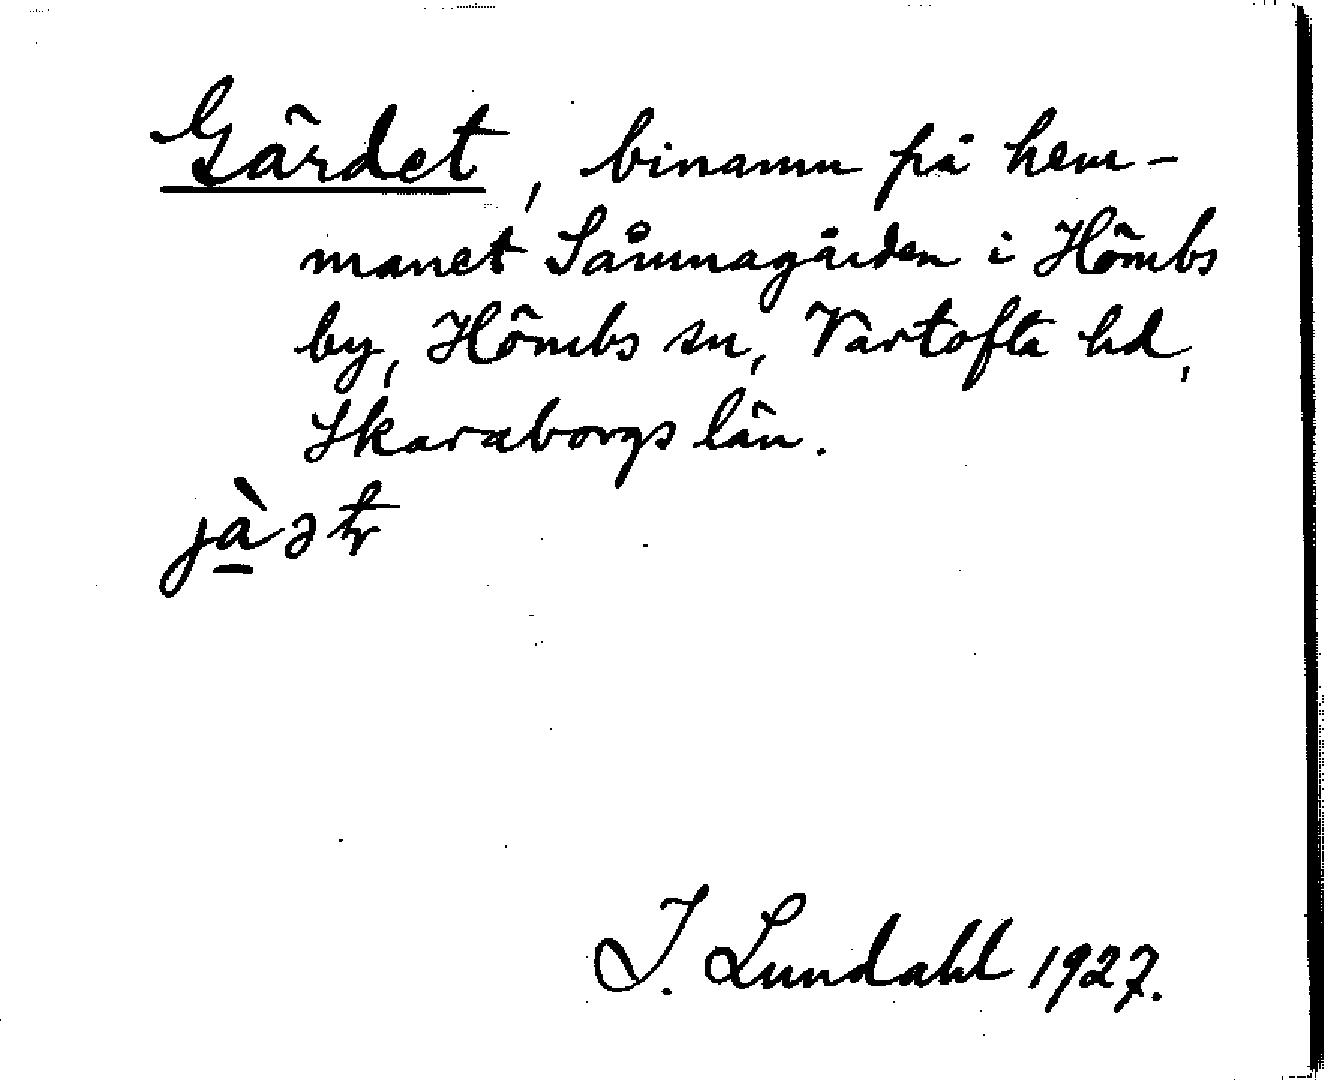 Gärdet, binamn på hem-
manet Sånnagården i Hömbs
by, Hömbs sn, Vartofta hd,
Skaraborgs län.
I. Lundahl 1927.